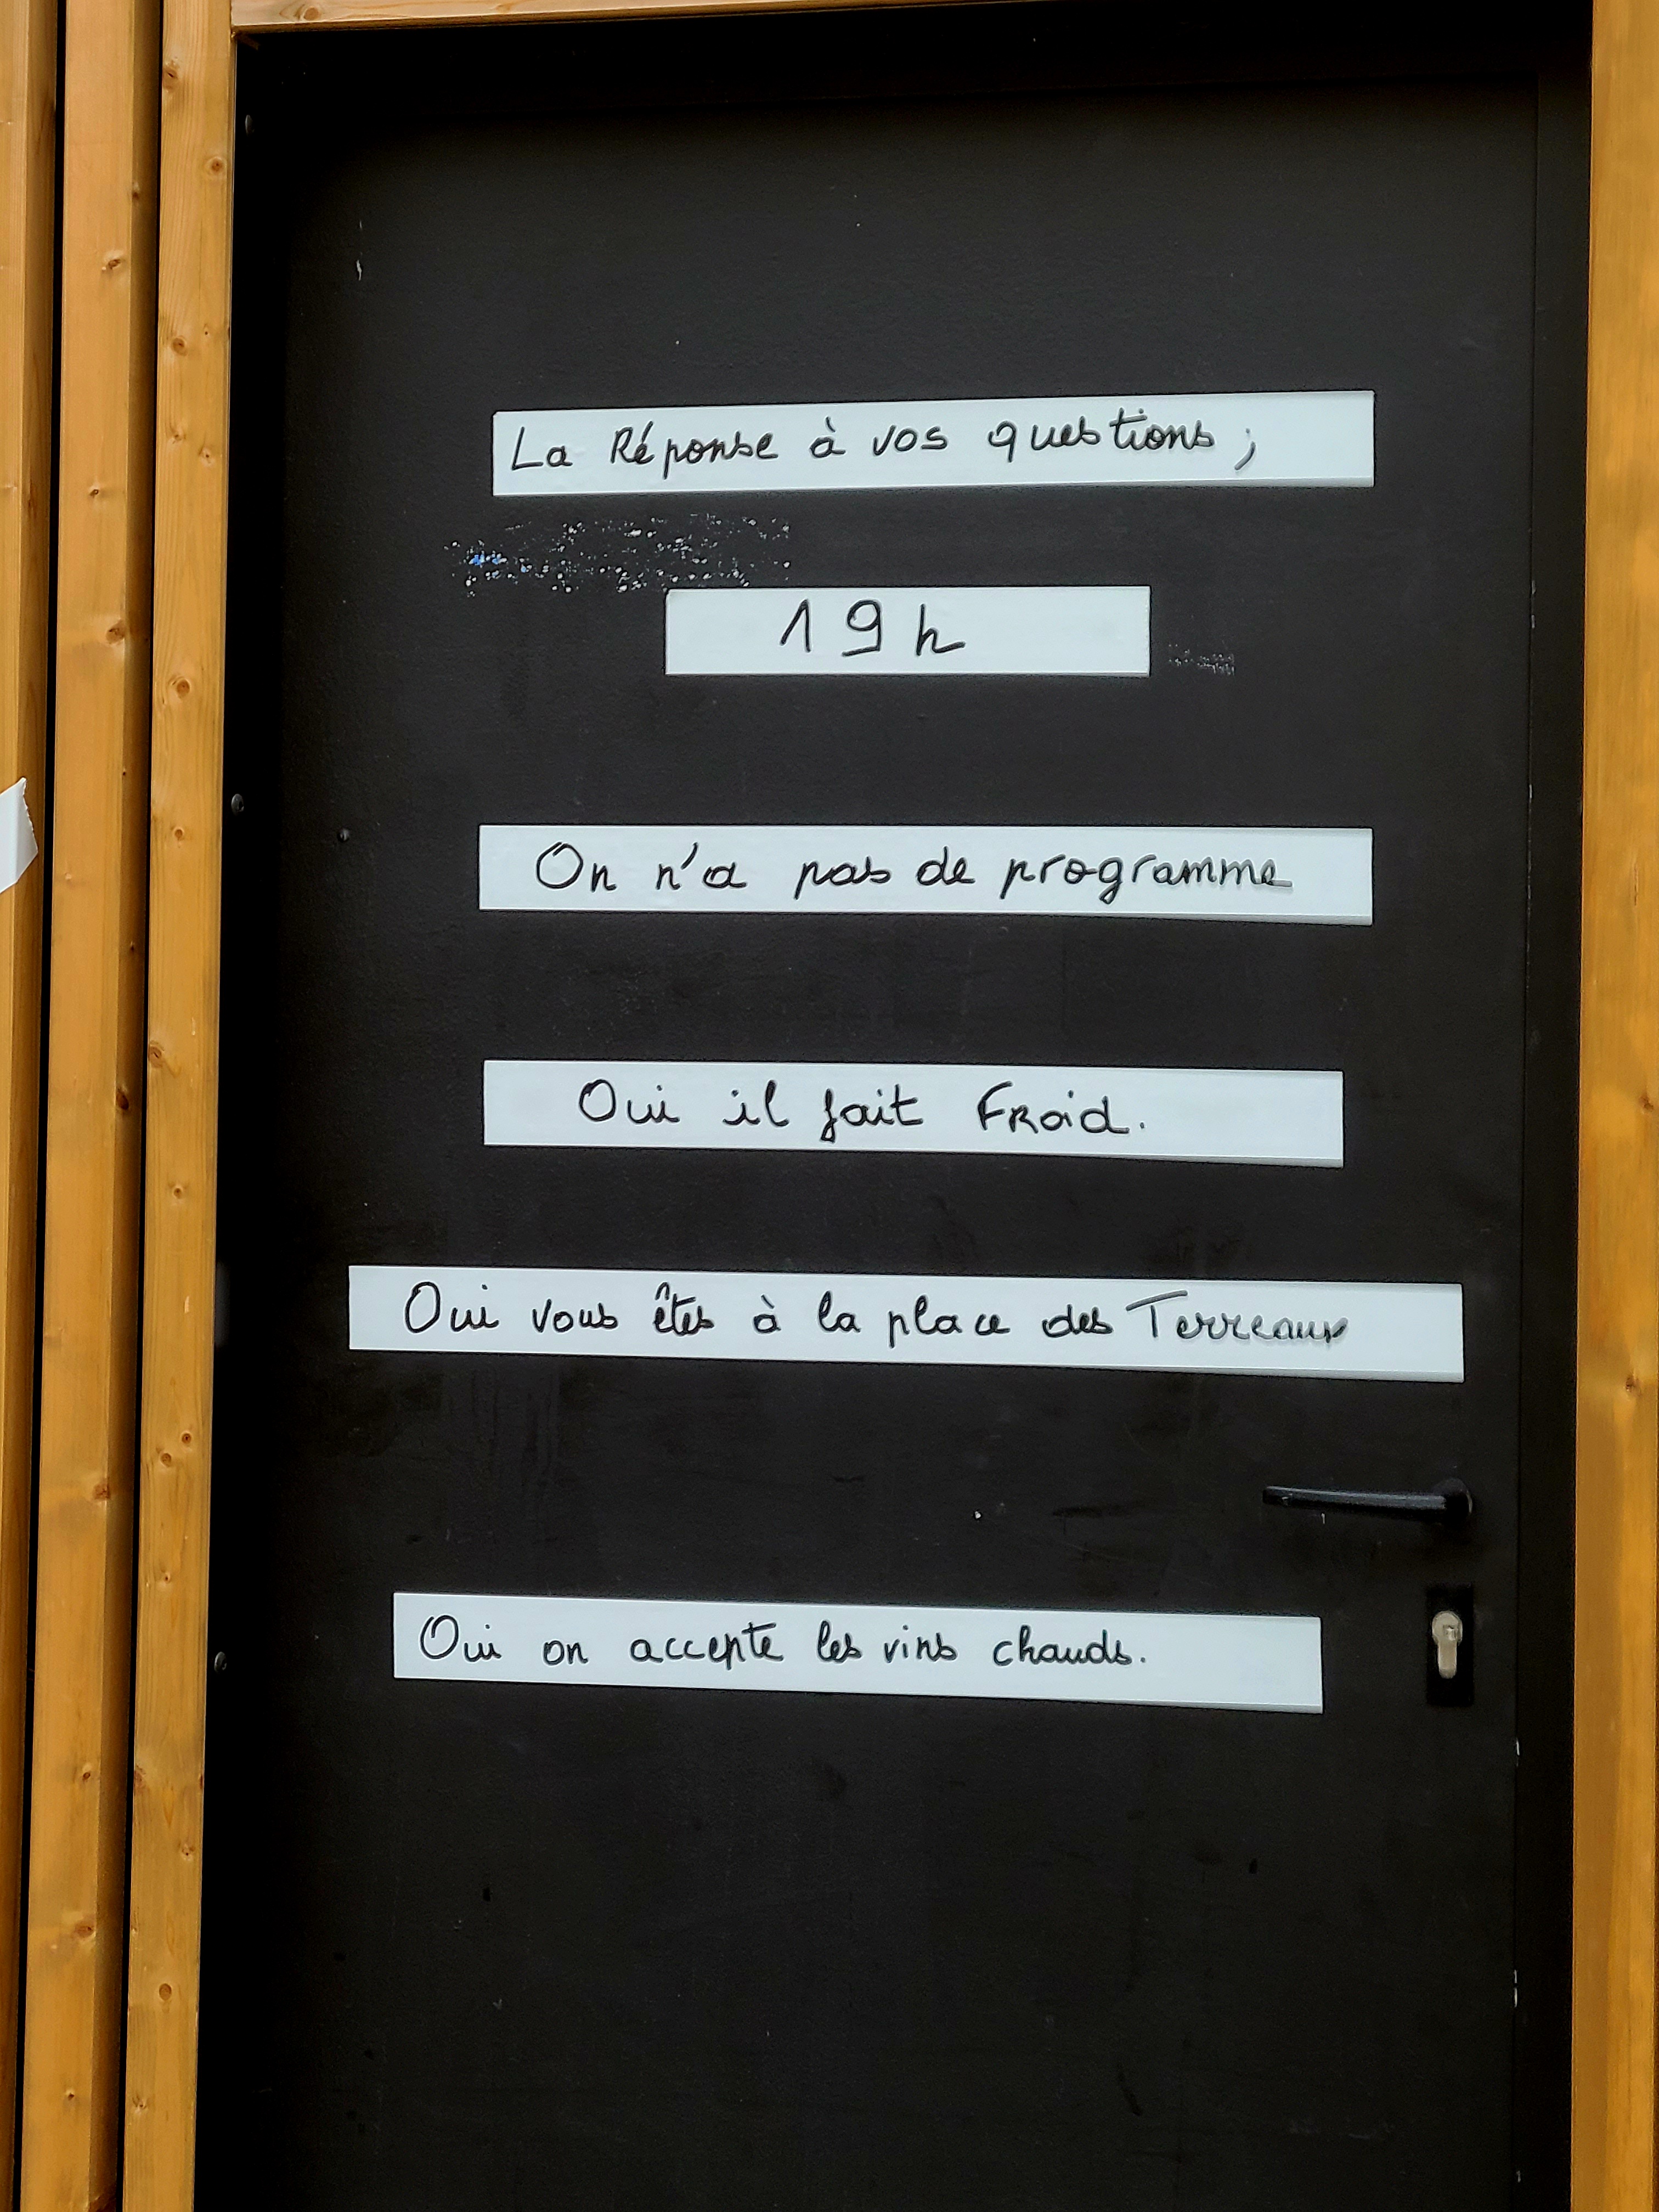 La Réponse à vos questions ;
19h
On n'a pas de programme
Oui il fait Froid.
Oui vous êtes à la place des Terreaux
Oui on accepte les vins chauds.